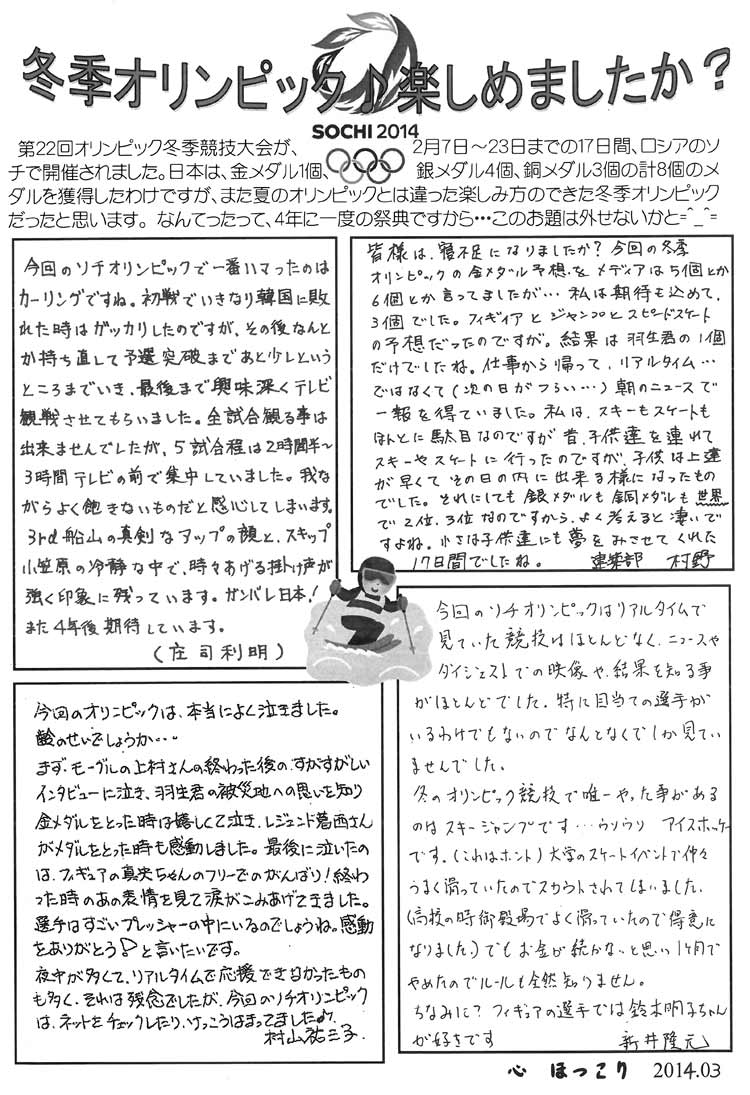 冬季オリンピック♪楽しめましたか？
SOCHI 2014
第22回オリンピック冬季競技大会が、2月7日～23日までの17日間、ロシアのソ
チで開催されました。日本は、金メダル1個、銀メダル4個、銅メダル3個の計8個のメ
ダルを獲得したわけですが、また夏のオリンピックとは違った楽しみ方のできた冬季オリンピック
だったと思います。なんてったって、4年に一度の祭典ですから…このお題は外せないかと=^_^=
今回のソチオリンピックで一番ハマったのは
カーリングですね。初戦でいきなり韓国に敗
れた時はガッカリしたのですが、その後なんと
か持ち直して予選突破まであと少しという
ところまでいき、最後まで興味深くテレビ
観戦させてもらいました。全試合観る事は
出来ませんでしたが、5試合程は2時間半～
3時間テレビの前で集中していました。我な
がらよく飽きないものだと感心してしまいます。
3rd船山の真剣なアップの顔と、スキップ
小笠原の冷静な中で、時々あげる掛け声が
強く印象に残っています。ガンバレ日本！
また4年後期待しています。
(庄司利明)
皆様は、寝不足になりましたか？今回の冬季
オリンピックの金メダル予想を、メディアは5個とか
6個とか言ってましたが…私は期待も込めて、
3個でした。フィギィアとジャンプとスピードスケート
の予想だったのですが。結果は羽生君の1個
だけでしたね。仕事から帰って、リアルタイム…
ではなくて(次の日がつらい…)朝のニュースで
一報を得ていました。私は、スキーもスケートも
ほんとに駄目なのですが昔、子供達を連れて
スキーやスケートに行ったのですが、子供は上達
が早くてその日の内に出来る様になったもの
でした。それにしても銀メダルも銅メダルも世界
で2位、3位なのですから、よく考えると凄いで
すよね。小さな子供達にも夢をみさせてくれた
17日間でしたね。 建築部 村野
今回のオリンピックは、本当によく泣きました。
齢のせいでしょうか…
まず、モーグルの上村さんの終わった後の、すがすがしい
インタビューに泣き、羽生君の被災地への思いを知り
金メダルをとった時は嬉しくて泣き、レジェンド葛西さん
がメダルをとった時も感動しました。最後に泣いたの
は、フィギュアの真央ちゃんのフリーでのがんばり！終わ
った時のあの表情を見て涙がこみあげてきました。
選手はすごいプレッシャーの中にいるのでしょうね。感動
をありがとう！と言いたいです。
夜中が多くて、リアルタイムで応援できなかったもの
も多く、それは残念でしたが、今回のソチオリンピック
は、ネットをチェックしたり、けっこうはまってました♪
村山祐三子
今回のソチオリンピックはリアルタイムで
見ていた競技はほとんどなく、ニュースや
ダイジェストでの映像や、結果を知る事
がほとんどでした。特に目当ての選手が
いるわけでもないのでなんとなくでしか見てい
ませんでした。
冬のオリンピック競技で唯一やった事がある
のはスキージャンプです…ウソウソ アイスホッケー
です。(これはホント)大学のスケートイベントで仲々
うまく滑っていたのでスカウトされてしまいました。
(高校の時御殿場でよく滑っていたので得意に
なりました。)でもお金が続かないと思い1ヶ月で
やめたのでルールも全然知りません。
ちなみに？フィギュアの選手では鈴木明子ちゃん
が好きです 新井隆元
心 ほっこり 2014.03